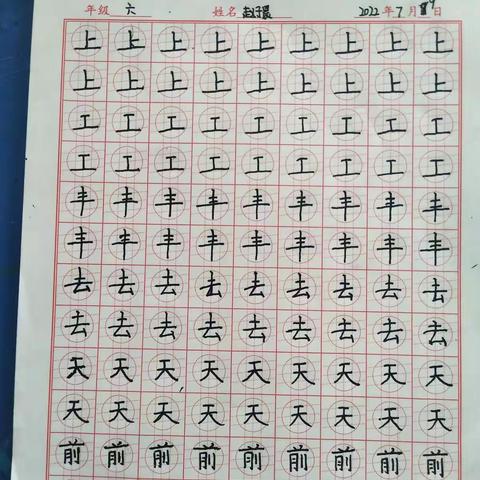 年级 六 姓名 2022年7月 日
上上上上上上上上上
上上上上上上上上上
工工工工工工工工工
工工工工工工工工工
丰丰丰丰丰丰丰丰丰
丰丰丰丰丰丰丰丰丰
去去去去去去去去去
去去去去去去去去去
天天天天天天天天天
天天天天天天天天天
前前前前前前前前前